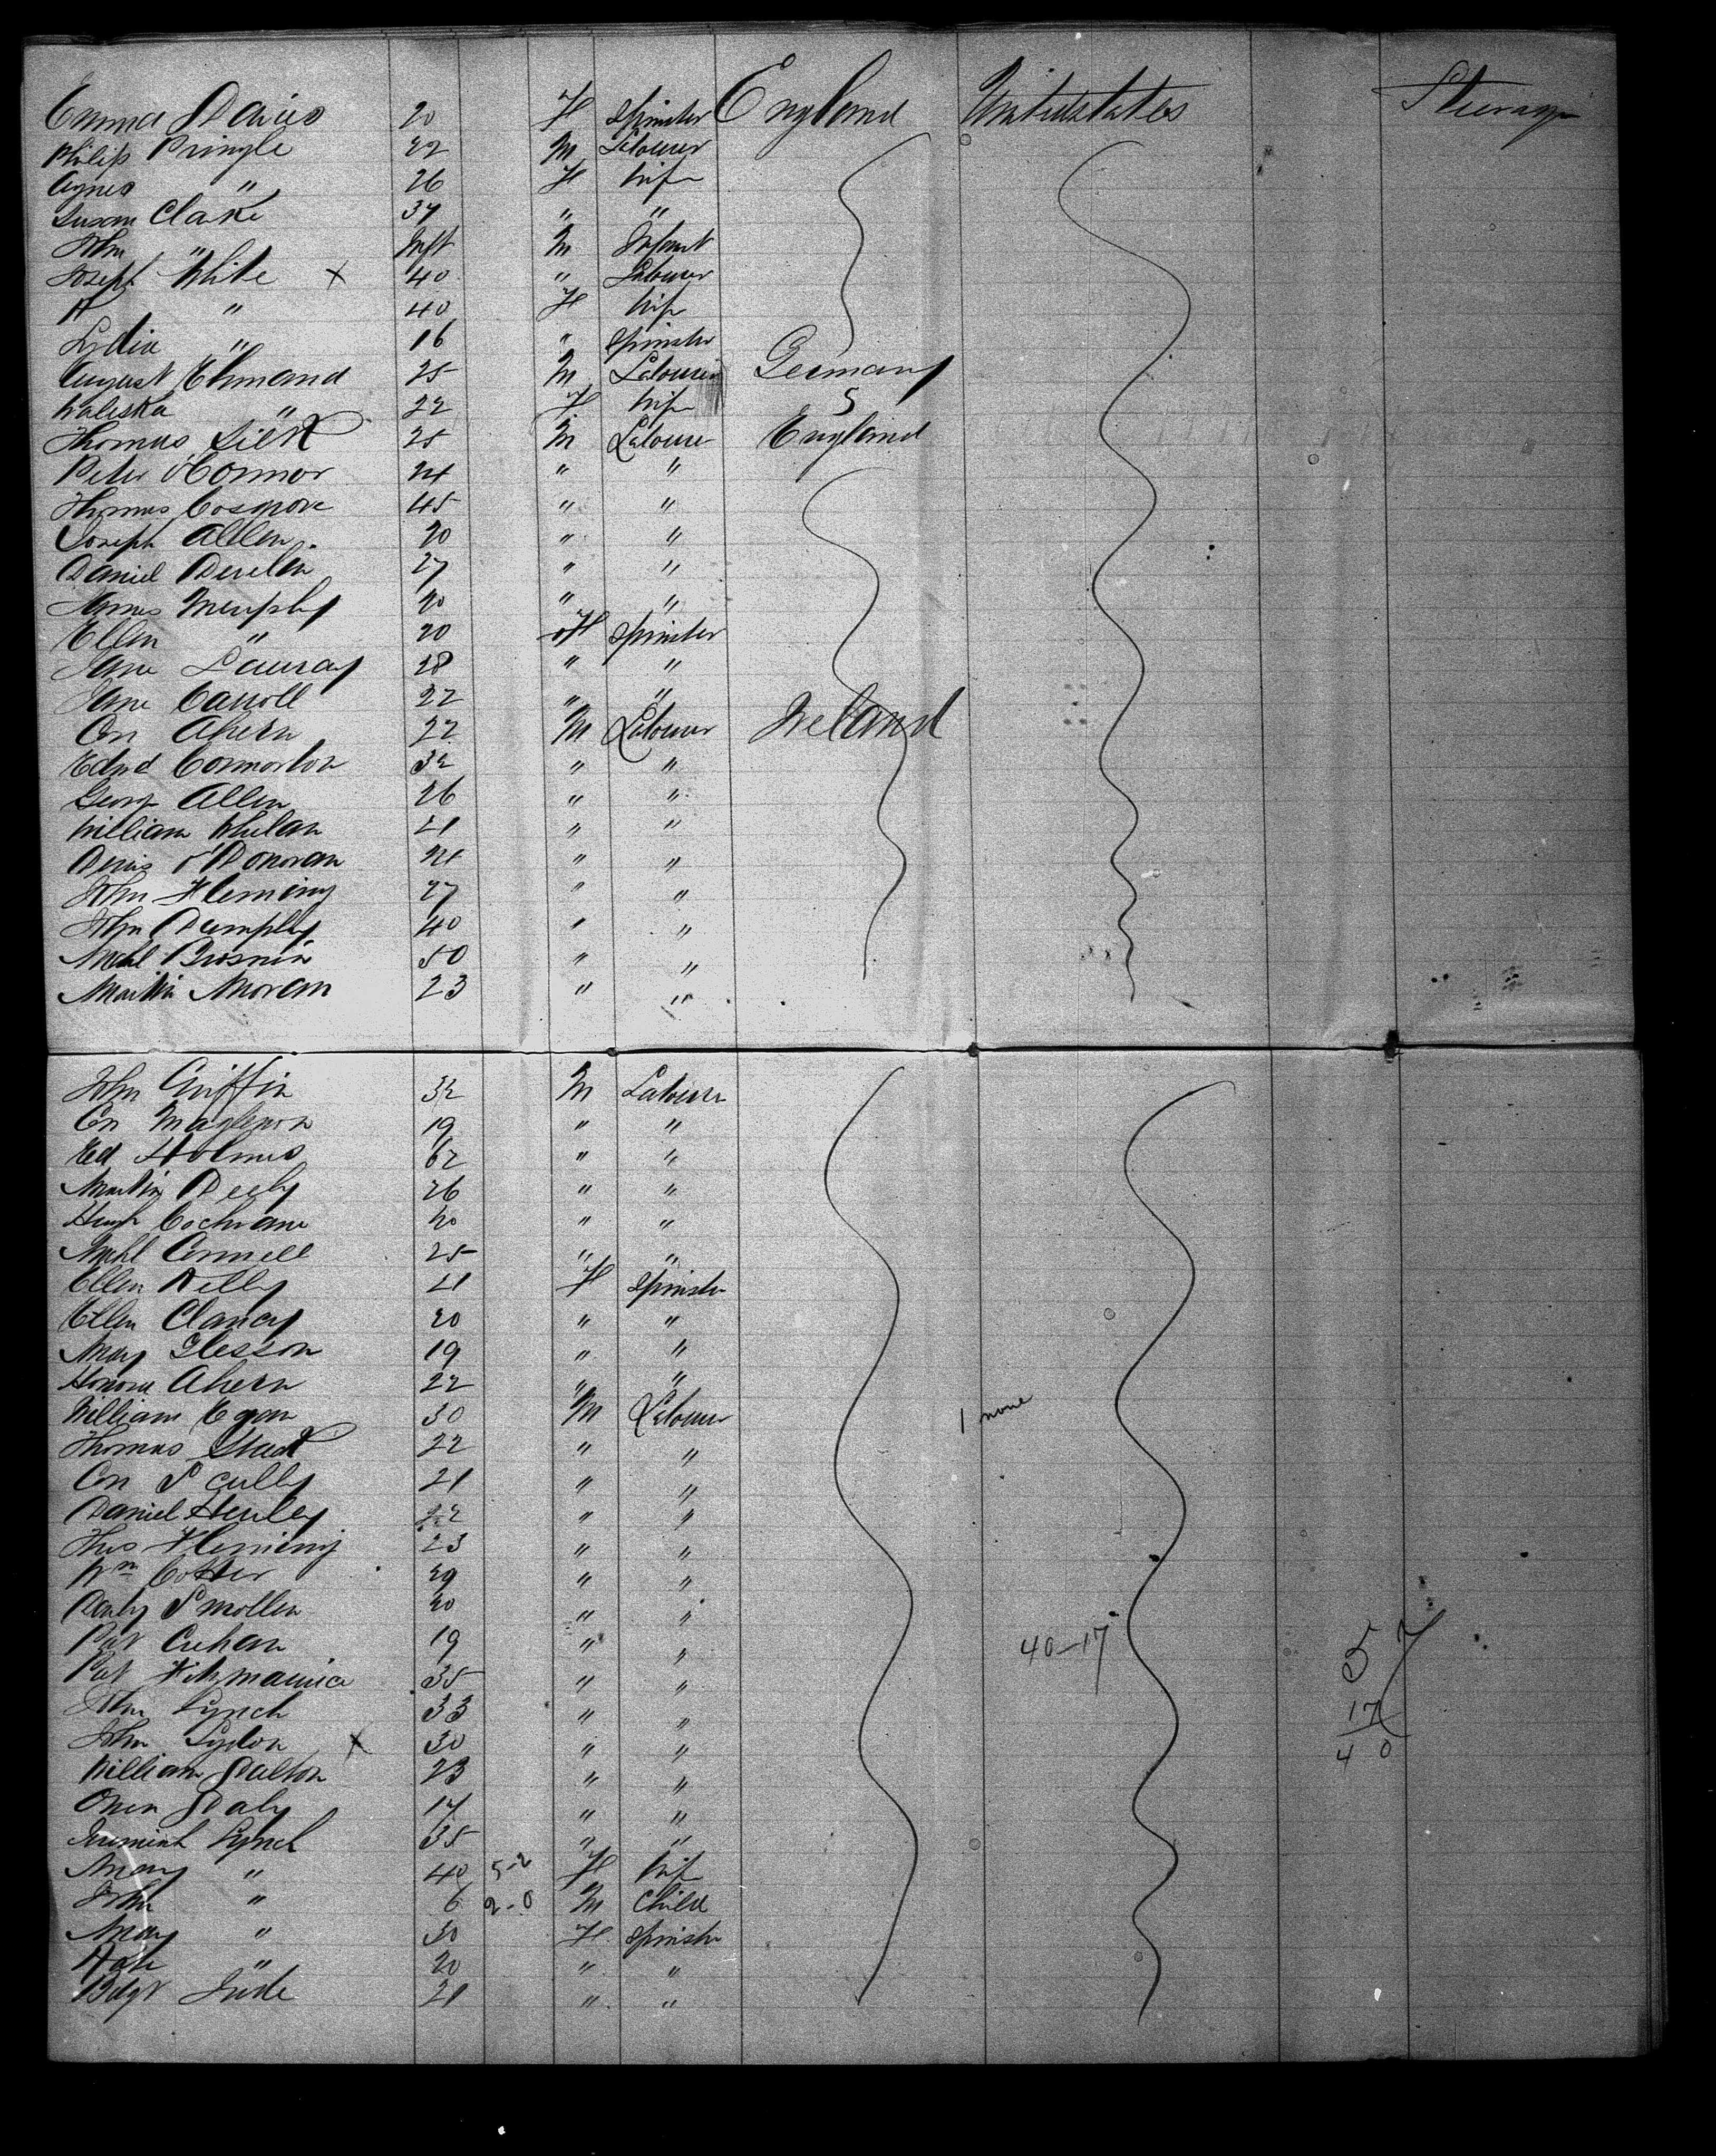 Emma Davies 20 F Spinster England United States Steerage
Philip Pringle 22 M Labourer
Agnes " 26 F Wife
Susan Clarke 34 " "
John " Inft M Infant
Joseph White x 40 " Labourer
" 40 F Wife
Lydia " 16 " Spinster
August Ehmand 25 M Labourer Germany
Waliska " 22 F Wife 5
Thomas Silk 25 M Labourer England
Peter O'Connor 24 " "
Thomas Cosgrove 45 " "
Joseph Allen 20 " "
Daniel Devlin 27 " "
James Murphy 20 " "
Ellen " 20 F Spinster
Jane 28 " "
Jane Carroll 22 " "
Con Ahern 22 M Labourer Ireland
Edmd 32 " "
George Allen 26 " "
William Whelan 21 " "
Denis O'Donovan 24 " "
John Fleming 27 " "
John Dumphy 40 " "
Michl Brosnin 50 " "
Martin Moran 23 " "
John Griffin 32 M Labourer
Con 19 " "
Ed Holmes 62 " "
Martin Deely 26 " "
Hugh Cochrane 20 " "
Michl Connell 25 " "
Ellen Kelly 21 F Spinster
Ellen Clancy 20 " "
Mary Glesson 19 " "
Honora Ahern 22 " "
William Egan 30 M Labourer 1 none
Thomas Stack 22 " "
Con Scully 21 " "
Daniel Hurley 22 " "
Thos Fleming 23 " "
Wm Cotter 29 " "
Smollen 20 " "
Pat Crehan 19 " " 40-17 57
Pat Fitzmaurice 35 " "
John Lynch 33 " " 17
John Lydon x 30 " " 40
William Dalton 23 " "
Owen Daly 17 " "
Jeremiah Lynch 35 " "
Mary " 40 5-2 F Wife
John " 6 2-0 M Child
Mary " 30 F Spinster
Kate " 20 " "
Bdgt Jude 21 " "